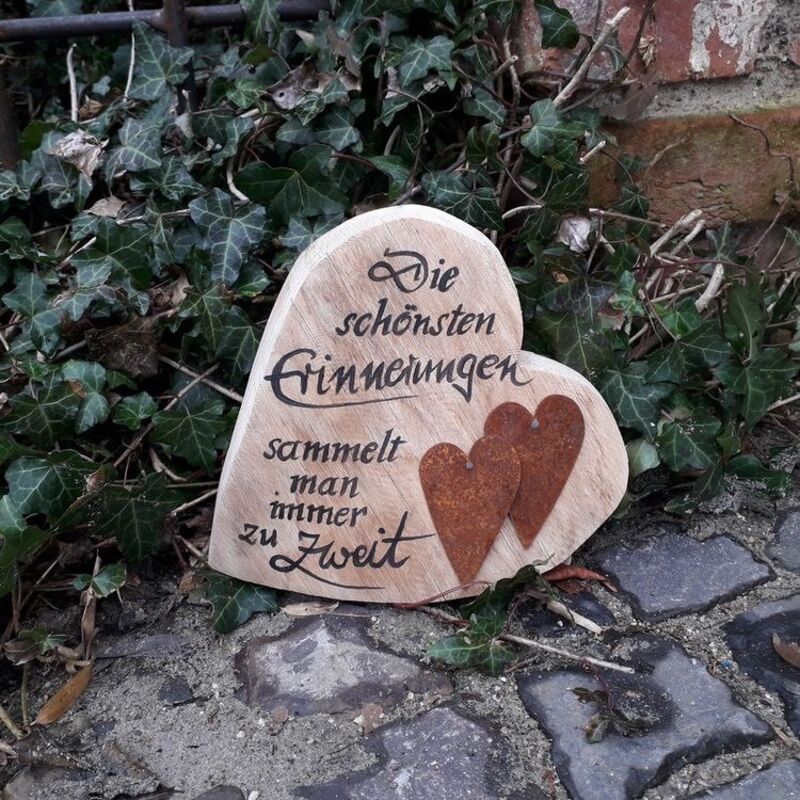 Die
schönsten
Erinnerungen
sammelt
man
immer
zu Zweit